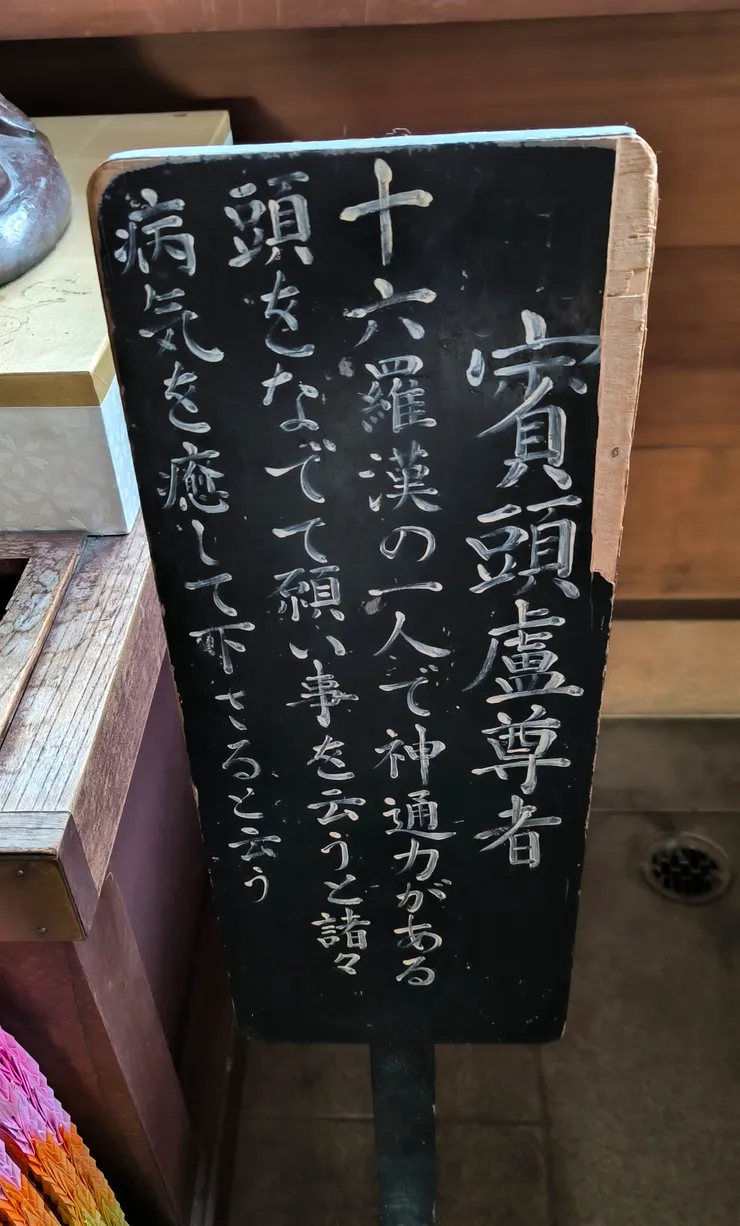 賓頭盧尊者
十六羅漢の一人で神通力がある
頭をなでて願い事を云うと諸々
病気を癒して下さると云う